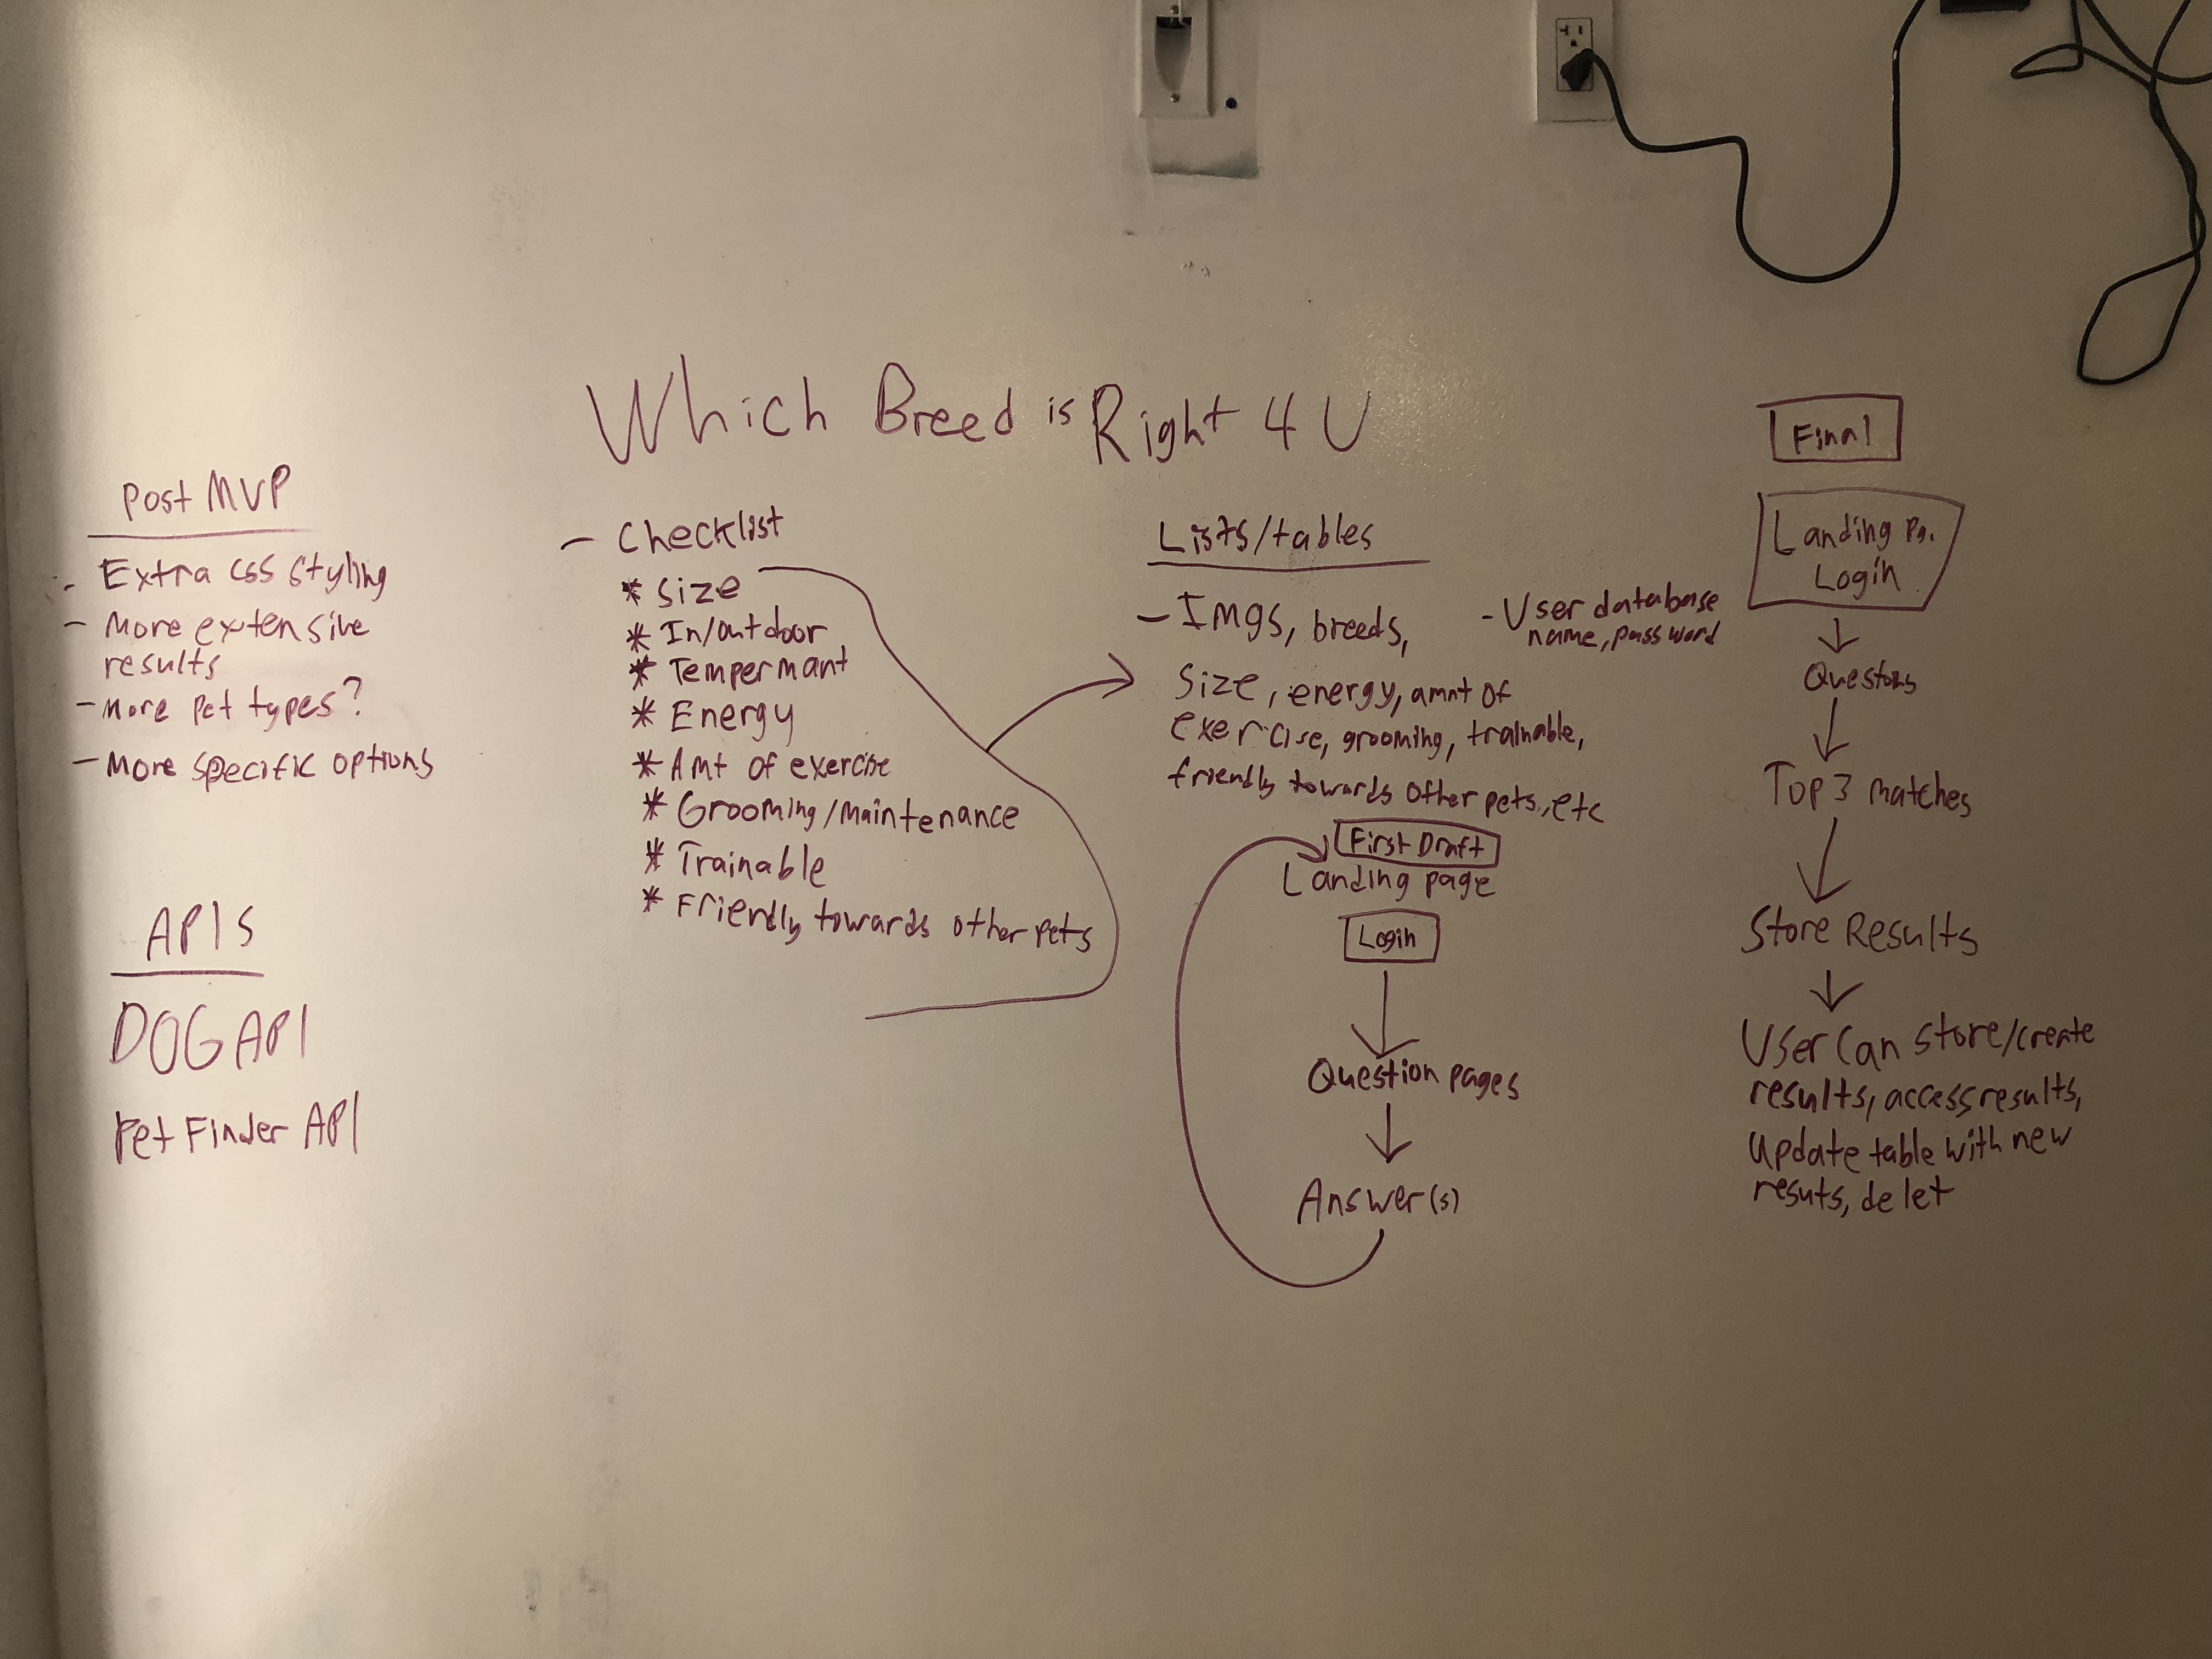 Which Breed is Right 4 U
Post MVP
- Extra CSS Styling
- More extensive
results
- More Pet types?
- More specific options
APIs
DOG API
Pet Finder API
- Checklist
* Size
* In/outdoor
* Tempermant
* Energy
* Amt of exercise
* Grooming/Maintenance
* Trainable
* Friendly towards other pets
Lists/tables
- Imgs, breeds,
Size, energy, amnt of
exercise, grooming, trainable,
friendly towards other pets., etc
- User database
name, password
First Draft
Landing page
Login
Question pages
Answer(s)
Final
Landing Pg.
Login
Questons
Top 3 matches
Store Results
User Can store/create
results, access results,
update table with new
resuts, delet